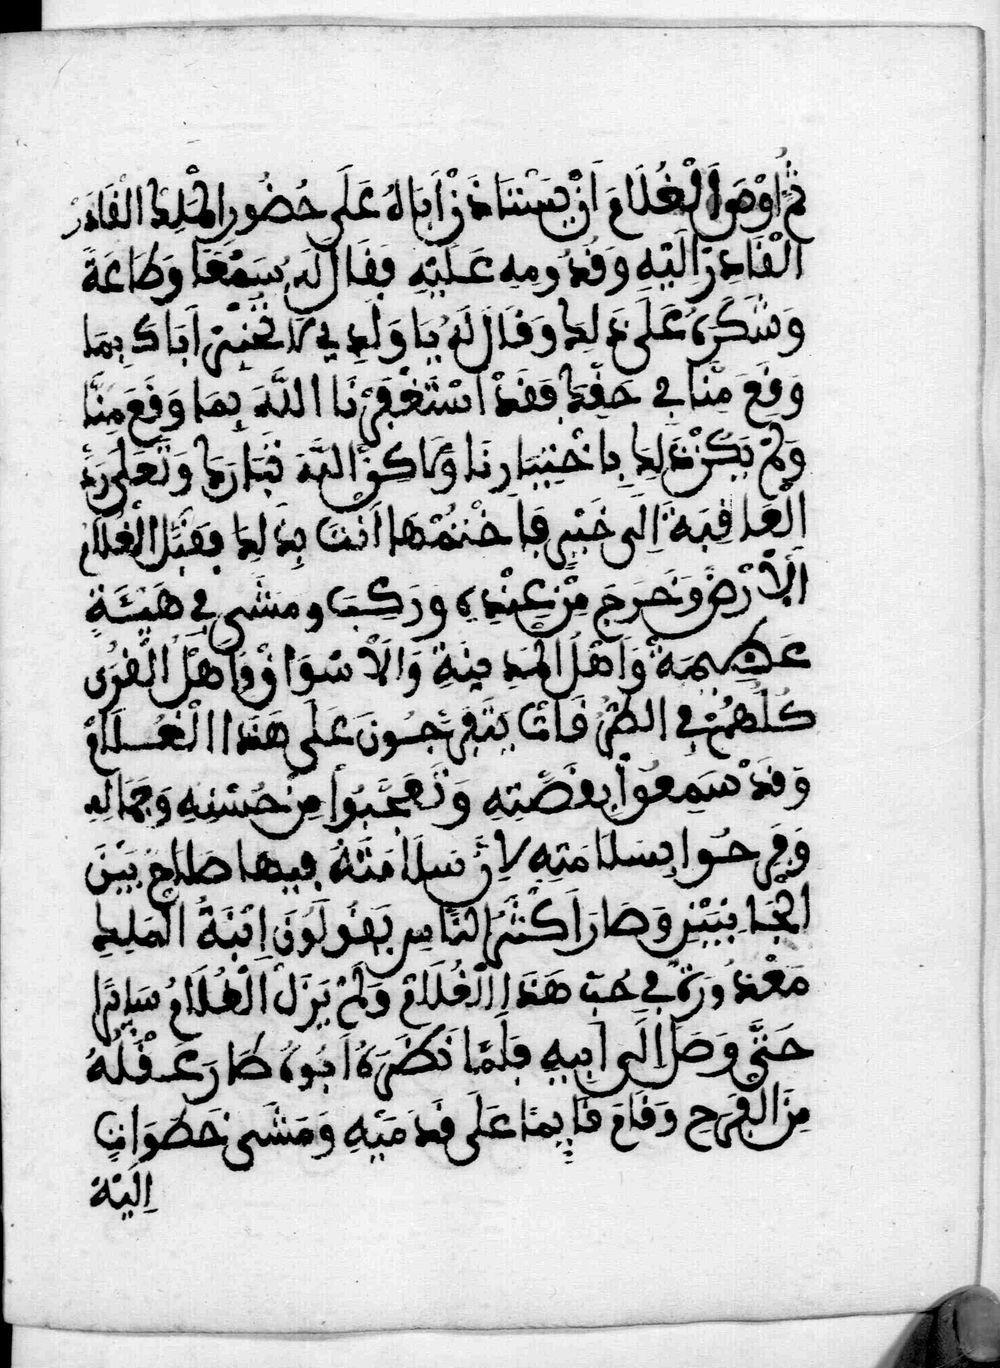 ثُمَّ اَوْصَى الْغُلَامَ اَنْ يَسْتَاذَنْ اَبَاهُ عَلَى حُضُورِ الْمَلِكِ الْقَادِرْ
الْقَادِرْ اِلَيْهِ وَقُدُومِهِ عَلَيْهِ فَقَالَ لَهُ سَمْعًا وَطَاعَةً
وَشَكَرَهُ عَلَى ذَلِكَ وَقَالَ لَهُ يَا وَلَدِي لَا تُخْبِرْ اَبَاكَ بِمَا
وَقَعَ مِنَّا فِي حَقِّكَ فَقَدْ اسْتَغْفَرْنَا اللَّهَ بِمَا وَقَعَ مِنَّا
وَلَمْ يَكُنْ ذَلِكَ بِاخْتِيَارِنَا وَلَاكِنَّ اللَّهَ تَبَارَكَ وَتَعَلَى رَدَّ
الْعَاقِبَةَ اِلَى خَيْرٍ فَاخْتُمْهَا اَنْتَ بِذَلِكَ فَقَبَّلَ الْغُلَامُ
الْاَرْضَ وَخَرَجَ مِنْ عِنْدِهِ وَرَكِبَ وَمَشَى فِي هَيْئَةٍ
عَظِيمَةٍ وَاَهْلُ الْمَدِينَةِ وَالْاَسْوَاقْ وَاَهْلُ الْقُرَى
كُلُّهُمْ فِي الطُّرُقَاتْ يَتَفَرَّجُونَ عَلَى هَذَا الْغُلَامْ
وَقَدْ سَمِعُوا بِقَصَّتِهِ وَتَعَجَّبُوا مِنْ حُسْنِهِ وَجَمَالِهِ
وَفَرِحُوا بِسَلَامَتِهِ لِاَنَّ سَلَامَتَهُ فِيهَا صَلَاحٌ بَيْنَ
الْجَانِبَيْنِ وَصَارَ اَكْثَرُ النَّاسِ يَقُولُونَ اِبْنَةُ الْمَلِكِ
مَعْذُورَةٌ فِي حُبِّ هَذَا الْغُلَامْ وَلَمْ يَزَلْ الْغُلَامُ سَايِرًا
حَتَّى وَصَلَ اِلَى اَبِيهِ فَلَمَّا نَظَرَهُ اَبُوهُ طَارَ عَقْلُهُ
مِنَ الْفَرَحِ وَقَامَ قَايِمًا عَلَى قَدَمَيْهِ وَمَشَى خَطَوَاتٍ
اِلَيْهِ